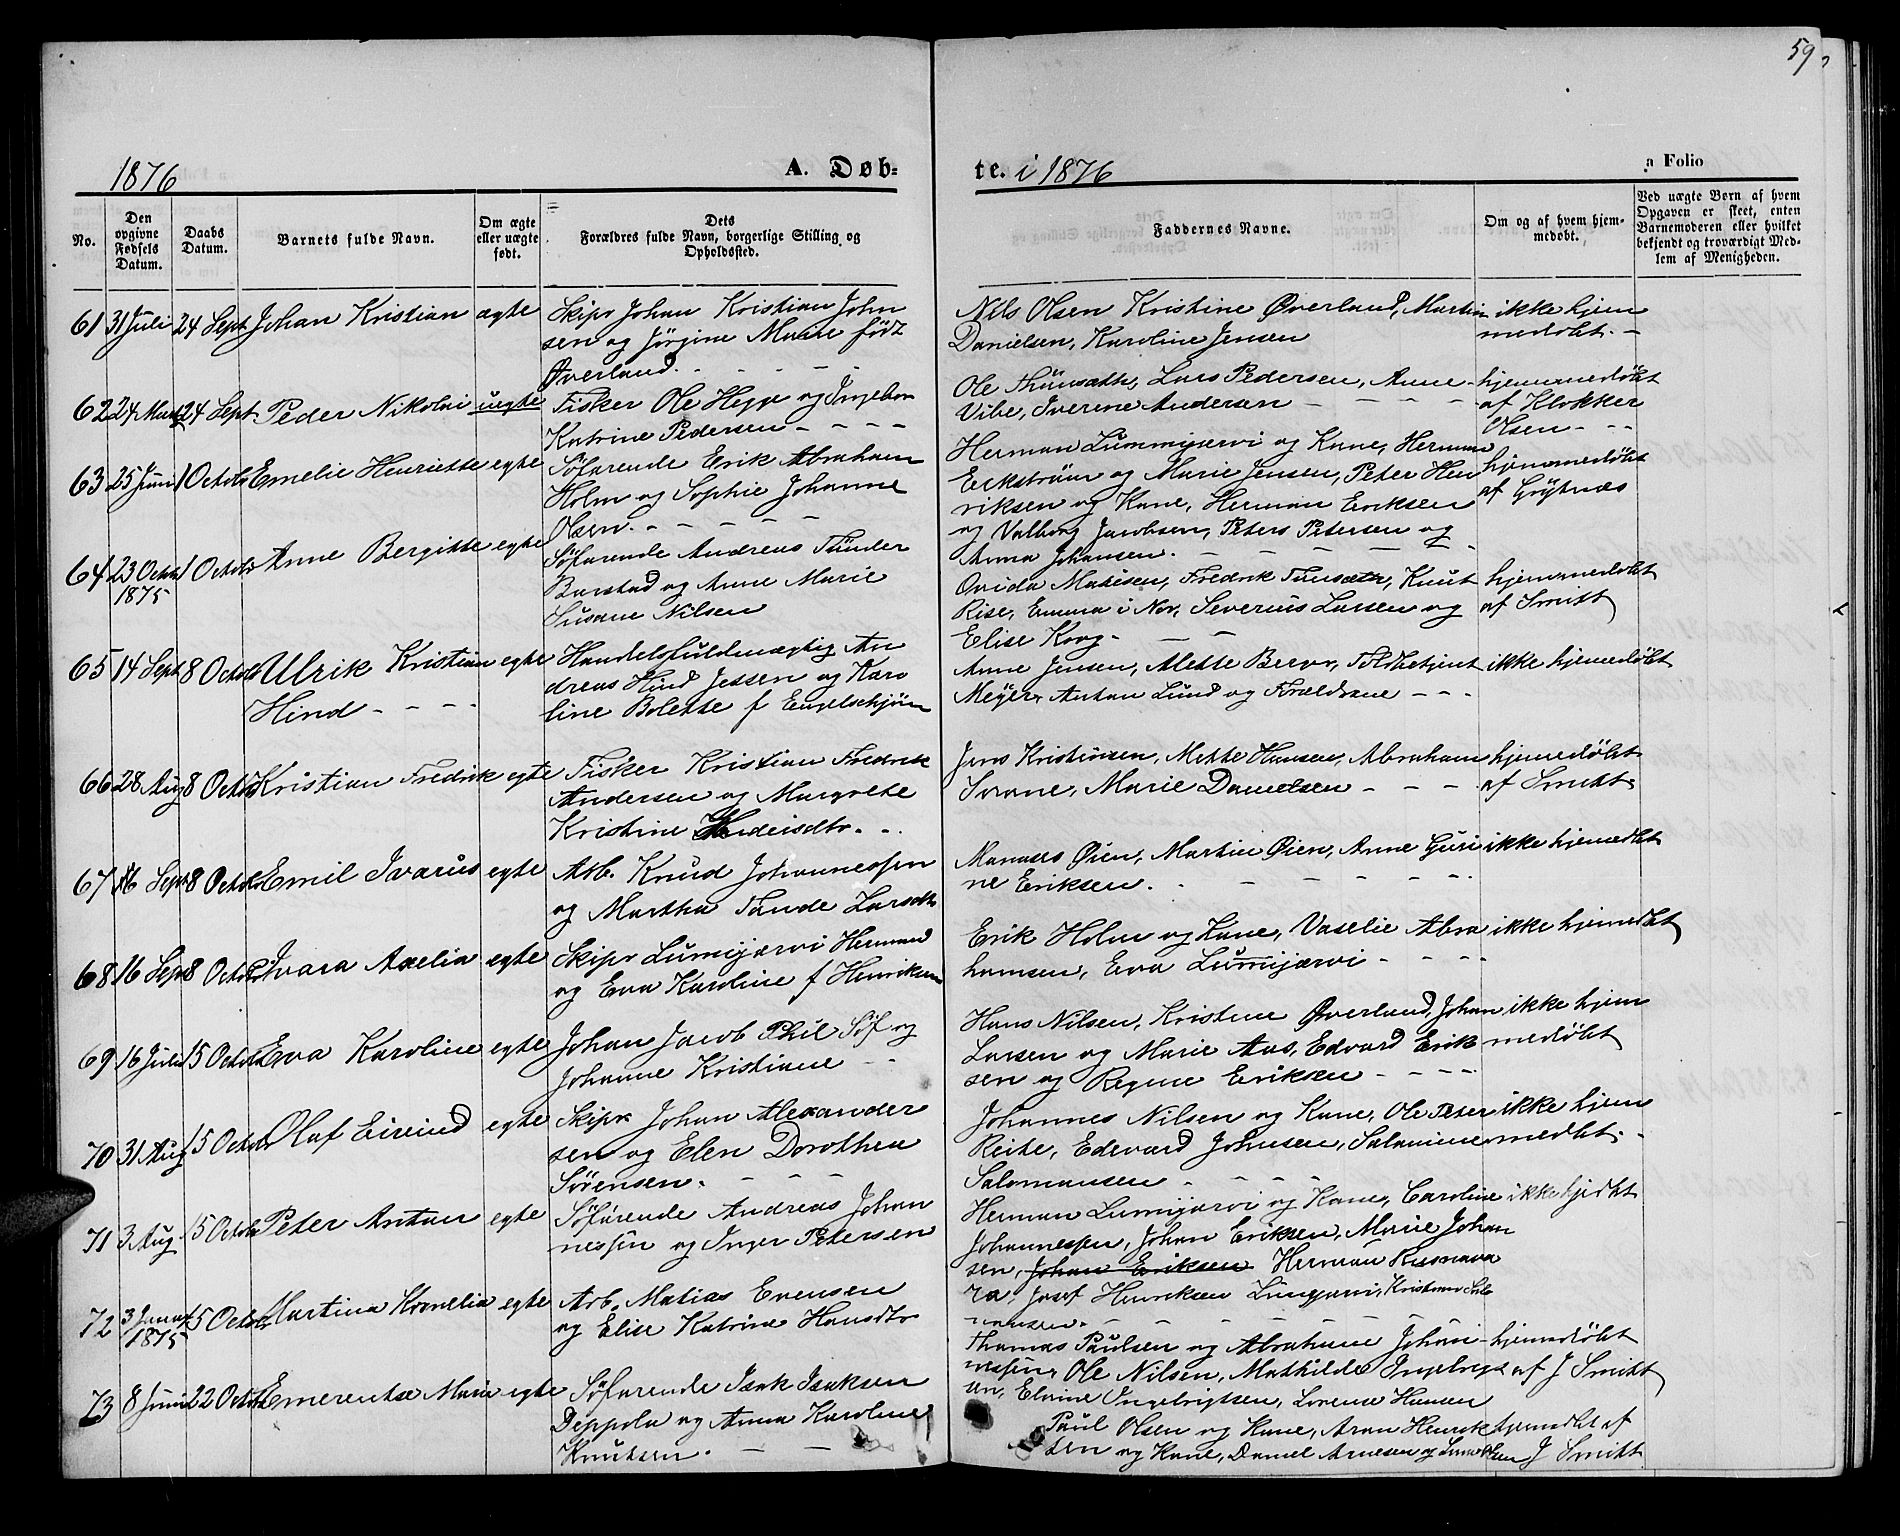 59
1876
A. Døb-
te. i 1876
a Folio
No.
Den opgivne Fødsels Datum.
Daabs Datum.
Barnets fulde Navn.
Om ægte eller uægte født.
Dets Forældres fulde Navn, borgerlige Stilling og Opholdssted.
Faddernes Navne.
Om og af hvem hjemmedøbt.
Ved uægte Børn af hvem Opgaven er skeet, enten Barnemoderen eller hvilket bekjendt og troværdigt Medlem af Menigheden.
61 31 Juli 24 Sept Johan Kristian ægte
Skipr Johan Kristian John
sen og Jörgine Marie født
Øverland.
Nils Olsen Kristine Øverland, Martin
Danielsen, Karoline Jensen
ikke hjem
medøbt.
62 24 24 Sept Peder Nikolai uegte
Fisker Ole Hegge og
Katrine Pedersen
Ole Lars Pedersen, Anne
Vibe, Iverine Andersen
hjemmedøbt
af Klokker
Olsen
63 25 Juni 1 Octob Emelie Henriette egte
Søfarende Erik Abraham
Holm og Sophie Johanne
Olsen.
Herman Lummijærvi og Kone, Herman
Eckström og Marie Jensen, Peter Hen
riksen og Kone, Herman Eriksen
og Valborg Jacobsen, Peters Petersen og
Anna Johansen.
hjemmedøbt
af Grøtnæs
64 23 Octob 1875 1 Octob Anne Bergitte egte
Søfarende Andreas Tünder
Barstad og Anne Marie
Susane Nilsen
Ovida Matisen, Fredrik Knut
Rise, Emma i Nor, Severius Larsen og
Elise Krog
hjemmedøbt
af Smitt
65 14 Sept 8 Octob Ulrik Kristian egte
Hind
Handelsfuldmægtig An
dreas Hind Jessen og Karo
line Bolette f Engelschjøn
Anne Jensen, Alette Foldbetjent
Meyer, Anton Lund og Forældrene
ikke hjemedøbt
66 28 Aug 8 Octob Kristian Fredrik egte
Fisker Kristian Fredrik
Andersen og Margrete
Kristine
Jens Kristiansen, Mette Hansen, Abraham
Svane, Marie Danielsen
hjemedøbt
af Smitt
67 16 Sept 8 Octob Emil Ivarus egte
Arb. Knud Johannessen
og Martha Tande Larsdtr
Manases Øien, Martin Øien, Anne Guri
ne Eriksen.
ikke hjemedbt
68 16 Sept 8 Octob Ivara Axelia egte
Skipr Lumijærvi Hermand
og Eva Karoline f Henriksen
Erik Holm og Kone, Vaselie Abra
hamsen, Eva Lumijærvi
ikke hjemedbt
69 16 Juli 15 Octob Eva Karoline egte
Johan Jacob Phil Søf og
Johanne Kristiane
Hans Nilsen, Kristine Øverland, Johan
Larsen og Marie Aas, Edvard Erik
sen og Regine Eriksen
ikke hjem
medøbt
70 31 Aug 15 Octob Olaf Eivind egte
Skipr Johan Alexander
sen og Elen Dorothea
Sørensen.
Johannes Nilsen og Kone, Ole Peter
Reite, Edevard Johnsen, Salamine
Salomansen
ikke hjem
medbt.
71 3 Aug. 15 Octob Peter Antan egte
Søfarende Andreas Johan
nessen og Inger Petersen
Herman Lumijærvi og Kone, Caroline
Johannessen, Johan Eriksen, Marie Johan
sen, Johan Eriksen Herman
ra, Josef Henriksen
ikke hjedbt
72 3 1875 15 Octob Martina Kornelia egte
Arb. Matias Evensen
og Elise Katrine Hansdtr
Thomas Paulsen og Abrahame Johan
nessen, Ole Nilsen, Mathilde Ingebrigt
sen, Elvine Ingebrigtsen, Lorense Hansen
hjemedøbt
af J Smitt
73 8 Juni 22 Octob Emerentse Maria egte
Søfarende Isak Isaksen
Deppola og Anna Karoline
Knutsen.
Paul Olsen og Kone, Aron Henrik
sen og Kone, Daniel Arnesen og
hjemedbt af
J Smitt